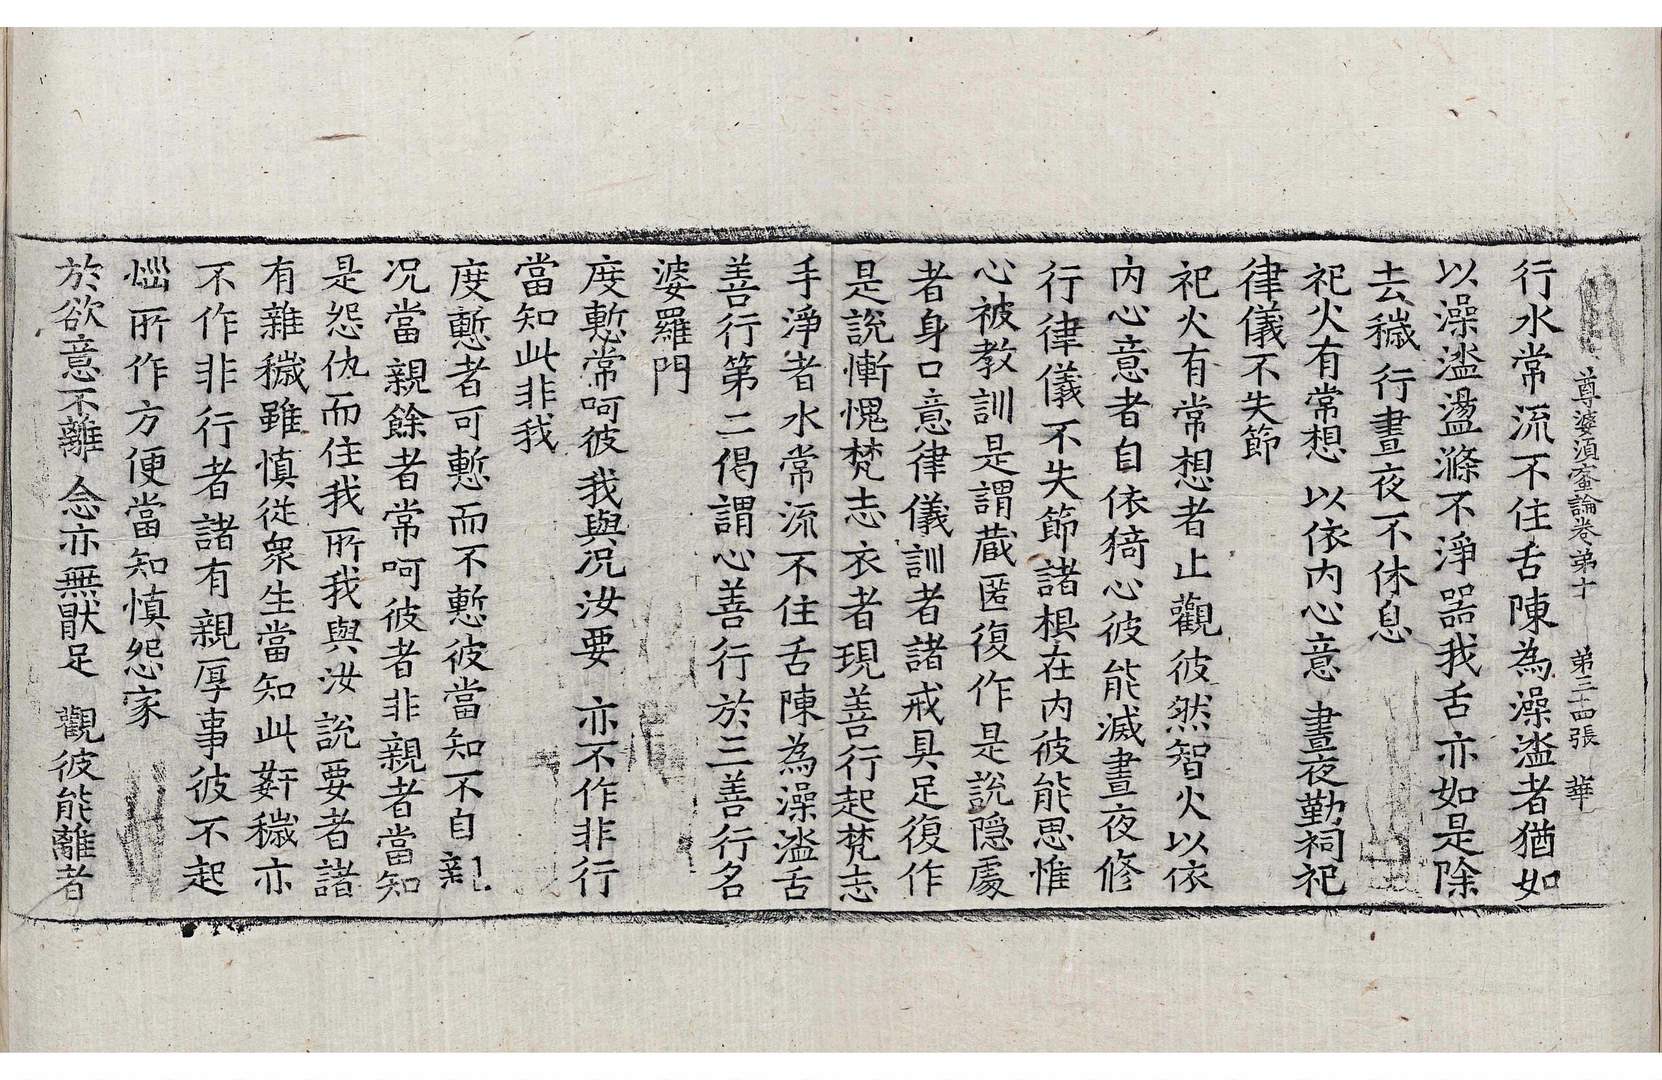 尊婆須蜜論卷第十 第三十四張 華
行水常流不住舌陳為澡盥者猶如
以澡盥盪滌不淨器我舌亦如是除
去穢行晝夜不休息
祀火有常想 以依內心意 晝夜勤祠祀
律儀不失節
祀火有常想者止觀彼然智火以依
內心意者自依猗心彼能滅晝夜修
行律儀不失節諸根在內彼能思惟
心被教訓是謂蔵匿復作是說隱處
者身口意律儀訓者諸戒具足復作
是說慚愧梵志衣者現善行起梵志
手淨者水常流不住舌陳為澡盥舌
善行第二偈謂心善行於三善行名
婆羅門
度慙常呵彼 我與况汝要 亦不作非行
當知此非我
度慙者可慙而不慙彼當知不自親
况當親餘者常呵彼者非親者當知
是怨仇而住我所我與汝說要者諸
有雜穢雖慎從衆生當知此姧穢亦
不作非行者諸有親厚事彼不起
惱所作方便當知慎怨家
於欲意不離 念亦無猒足 觀彼能離者